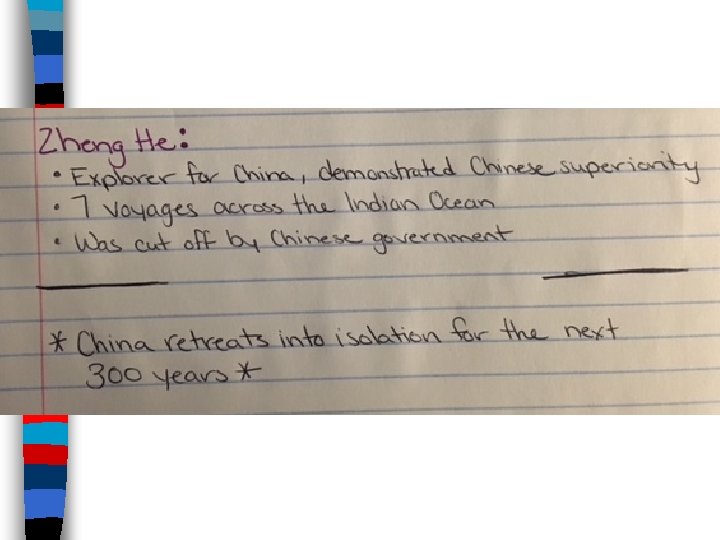 Zheng He:
• Explorer for China, demonstrated Chinese superiority
• 7 voyages across the Indian Ocean
• Was cut off by Chinese government
* China retreats into isolation for the next
300 years *